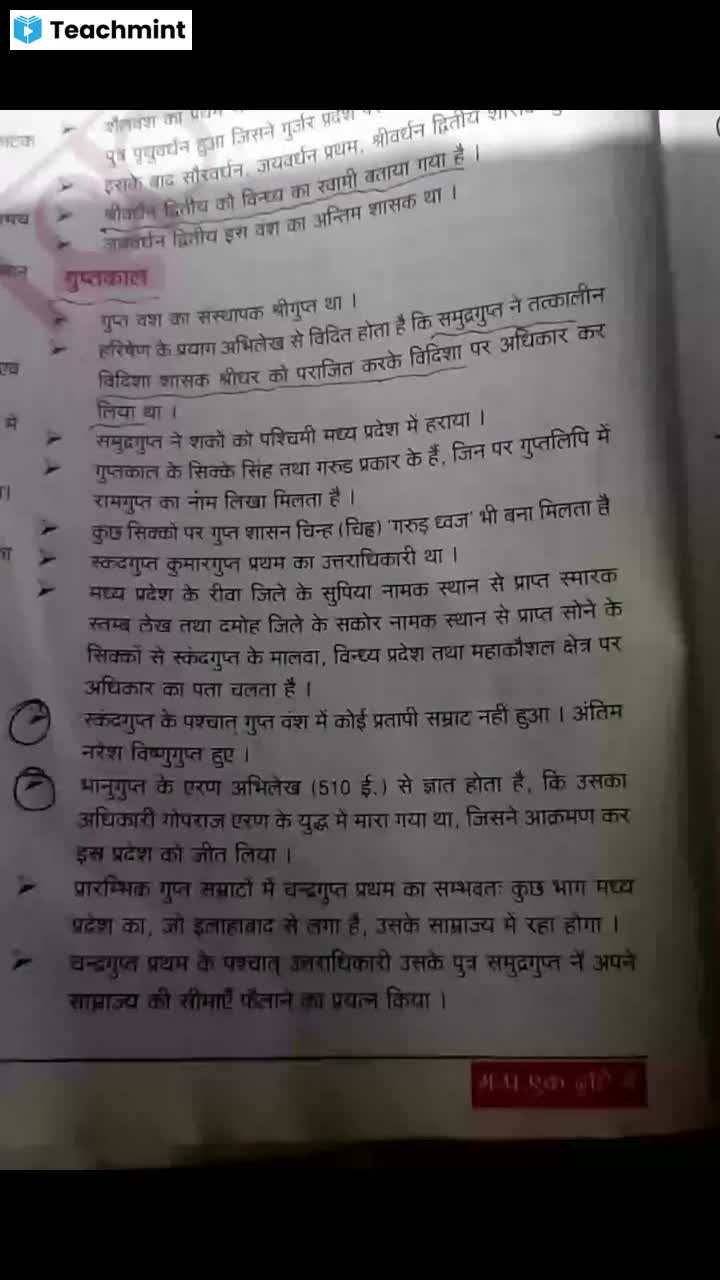 Teachmint
शैलवंश का प्रथम
पुत्र पृथुवर्धन हुआ जिसने गुर्जर प्रदेश
इसके बाद सौरवर्धन, जयवर्धन प्रथम, श्रीवर्धन द्वितीय
श्रीवर्धन द्वितीय को विन्ध्य का स्वामी बताया गया है ।
जयवर्धन द्वितीय इस वंश का अन्तिम शासक था ।
गुप्तकाल
गुप्त वंश का संस्थापक श्रीगुप्त था ।
हरिषेण के प्रयाग अभिलेख से विदित होता है कि समुद्रगुप्त ने तत्कालीन
विदिशा शासक श्रीधर को पराजित करके विदिशा पर अधिकार कर
लिया था ।
में
समुद्रगुप्त ने शकों को पश्चिमी मध्य प्रदेश में हराया ।
गुप्तकाल के सिक्के सिंह तथा गरुड प्रकार के हैं, जिन पर गुप्तलिपि में
रामगुप्त का नाम लिखा मिलता है ।
कुछ सिक्कों पर गुप्त शासन चिन्ह (चिह्न) 'गरुड़ ध्वज' भी बना मिलता है
स्कंदगुप्त कुमारगुप्त प्रथम का उत्तराधिकारी था ।
मध्य प्रदेश के रीवा जिले के सुपिया नामक स्थान से प्राप्त स्मारक
स्तम्ब लेख तथा दमोह जिले के सकोर नामक स्थान से प्राप्त सोने के
सिक्कों से स्कंदगुप्त के मालवा, विन्ध्य प्रदेश तथा महाकौशल क्षेत्र पर
अधिकार का पता चलता है ।
स्कंदगुप्त के पश्चात् गुप्त वंश में कोई प्रतापी सम्राट नहीं हुआ । अंतिम
नरेश विष्णुगुप्त हुए ।
भानुगुप्त के एरण अभिलेख (510 ई.) से ज्ञात होता है, कि उसका
अधिकारी गोपराज एरण के युद्ध में मारा गया था, जिसने आक्रमण कर
इस प्रदेश को जीत लिया ।
प्रारम्भिक गुप्त सम्राटों में चन्द्रगुप्त प्रथम का सम्भवतः कुछ भाग मध्य
प्रदेश का, जो इलाहाबाद से लगा है, उसके साम्राज्य में रहा होगा ।
चन्द्रगुप्त प्रथम के पश्चात् उत्तराधिकारी उसके पुत्र समुद्रगुप्त नें अपने
साम्राज्य की सीमाएँ फैलाने का प्रयत्न किया ।
एक